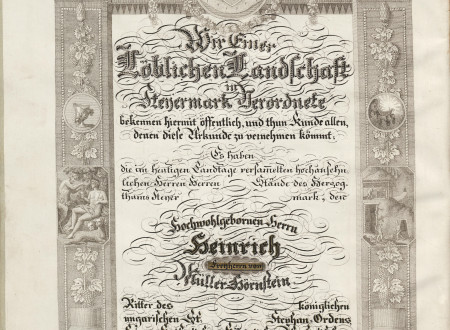 Wir Einer
Löblichen Landschaft
in
Steyermark Verordnete
bekennen hiermit öffentlich, und thun Kunde allen,
denen diese Urkunde zu vernehmen kömmt.
Es haben
die im heutigen Landtage versamelten hochansehn-
lichen Herren Herren Stände des Herzog-
thums Steyer mark, den
Hochwohlgebornen Herrn
Heinrich
Freyherrn von
Müller Hörnstein
Ritter des königlichen
ungarischen St. Stephan Ordens